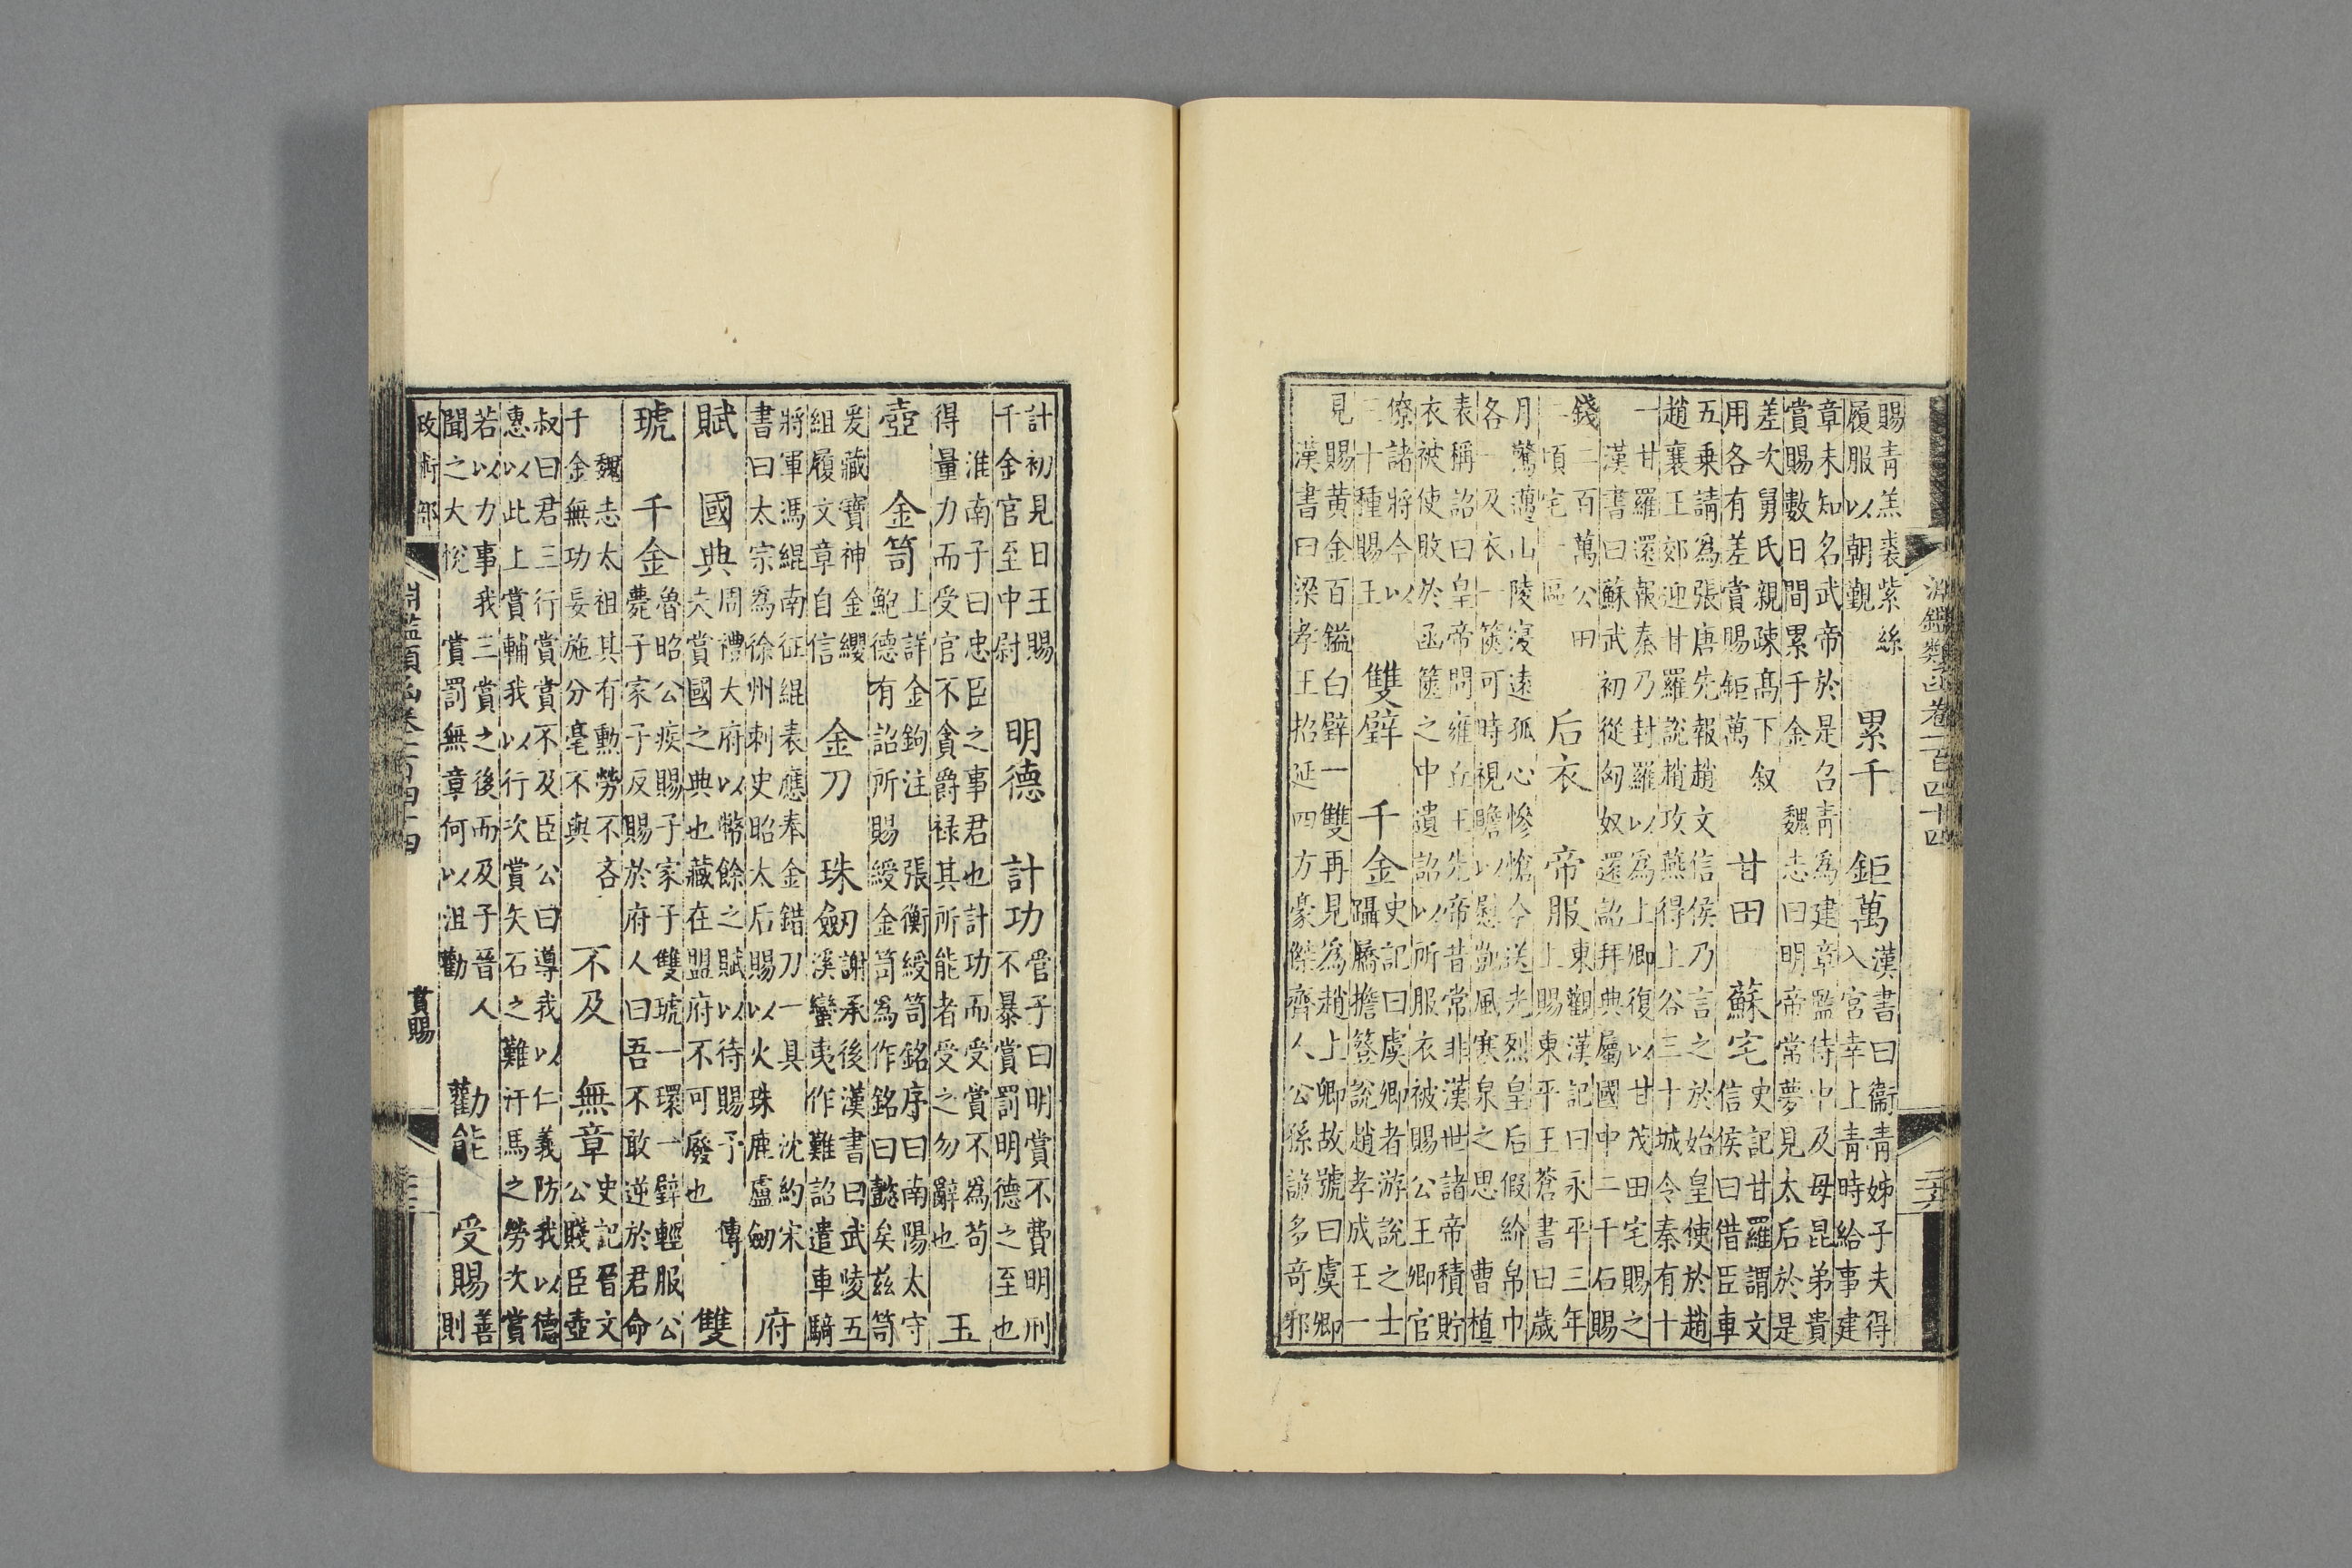 淵鑑類函卷一百四十四
賜青羔裘紫絲
履服以朝覲
累千　鉅萬
漢書曰衞青姊子夫得
入宮幸上青時給事建
章未知名武帝於是召青為建章監侍中及母昆弟貴
賞賜數日間累千金　魏志曰明帝常夢見太后於是
差次舅氏親疎高下叙
用各有差賞賜鉅萬
甘田　蘇宅
史記甘羅謂文
信侯曰借臣車
五乗請為張唐先報趙文信侯乃言之於始皇使於趙
趙襄王郊迎甘羅說趙攻燕得上谷三十城令秦有十
一甘羅還報秦乃封羅以為上卿復以甘茂田宅賜之
漢書曰蘇武初從匈奴還詔拜典屬國中二千石賜
錢二百萬公田
二頃宅一區
后衣　帝服
東觀漢記曰永平三年
上賜東平王蒼書曰歲
月騖邁山陵浸遠孤心慘愴今送光烈皇后假紒帛巾
各一及衣一篋可時視瞻以慰凱風寒泉之思　曹植
表稱詔曰皇帝問雍丘王先帝昔常非漢世諸帝積貯
衣被使敗於函篋之中遺詔以所服衣被賜公王卿官
僚諸將今以
三十種賜王
雙璧　千金
史記曰虞卿者游說之士
躡屩擔簦說趙孝成王一
見賜黃金百鎰白璧一雙再見為趙上卿故號曰虞卿
漢書曰梁孝王招延四方豪傑齊人公孫詭多奇邪
計初見日王賜
千金官至中尉
明德　計功
管子曰明賞不費明刑
不暴賞罰明德之至也
淮南子曰忠臣之事君也計功而受賞不為茍
得量力而受官不貪爵祿其所能者受之勿辭也
玉
壺　金笥
上詳金鉤注　張衡綬笥銘序曰南陽太守
鮑德有詔所賜綬金笥為作銘曰懿矣茲笥
爰藏寶神金纓
組履文章自信
金刀　珠劒
謝承後漢書曰武陵五
溪蠻夷作難詔遣車騎
將軍馮緄南征緄表應奉金錯刀一具　沈約宋
書曰太宗為徐州刺史昭太后賜以火珠鹿盧劒
府
賦　國典
周禮大府以幣餘之賦以待賜予　傳
夫賞國之典也藏在盟府不可廢也
雙
琥　千金
魯昭公疾賜子家子雙琥一環一璧輕服公
薨子家子反賜於府人曰吾不敢逆於君命
魏志太祖其有勳勞不吝
千金無功妄施分毫不與
不及　無章
史記晉文
公賤臣壺
叔曰君三行賞賞不及臣公曰導我以仁義防我以德
惠以此上賞輔我以行次賞矢石之難汗馬之勞次賞
若以力事我三賞之後而及子晉人
聞之大悅　賞罰無章何以沮勸
勸能　受賜
善
則
政術部
淵鑑類函卷二百四十四
賞賜